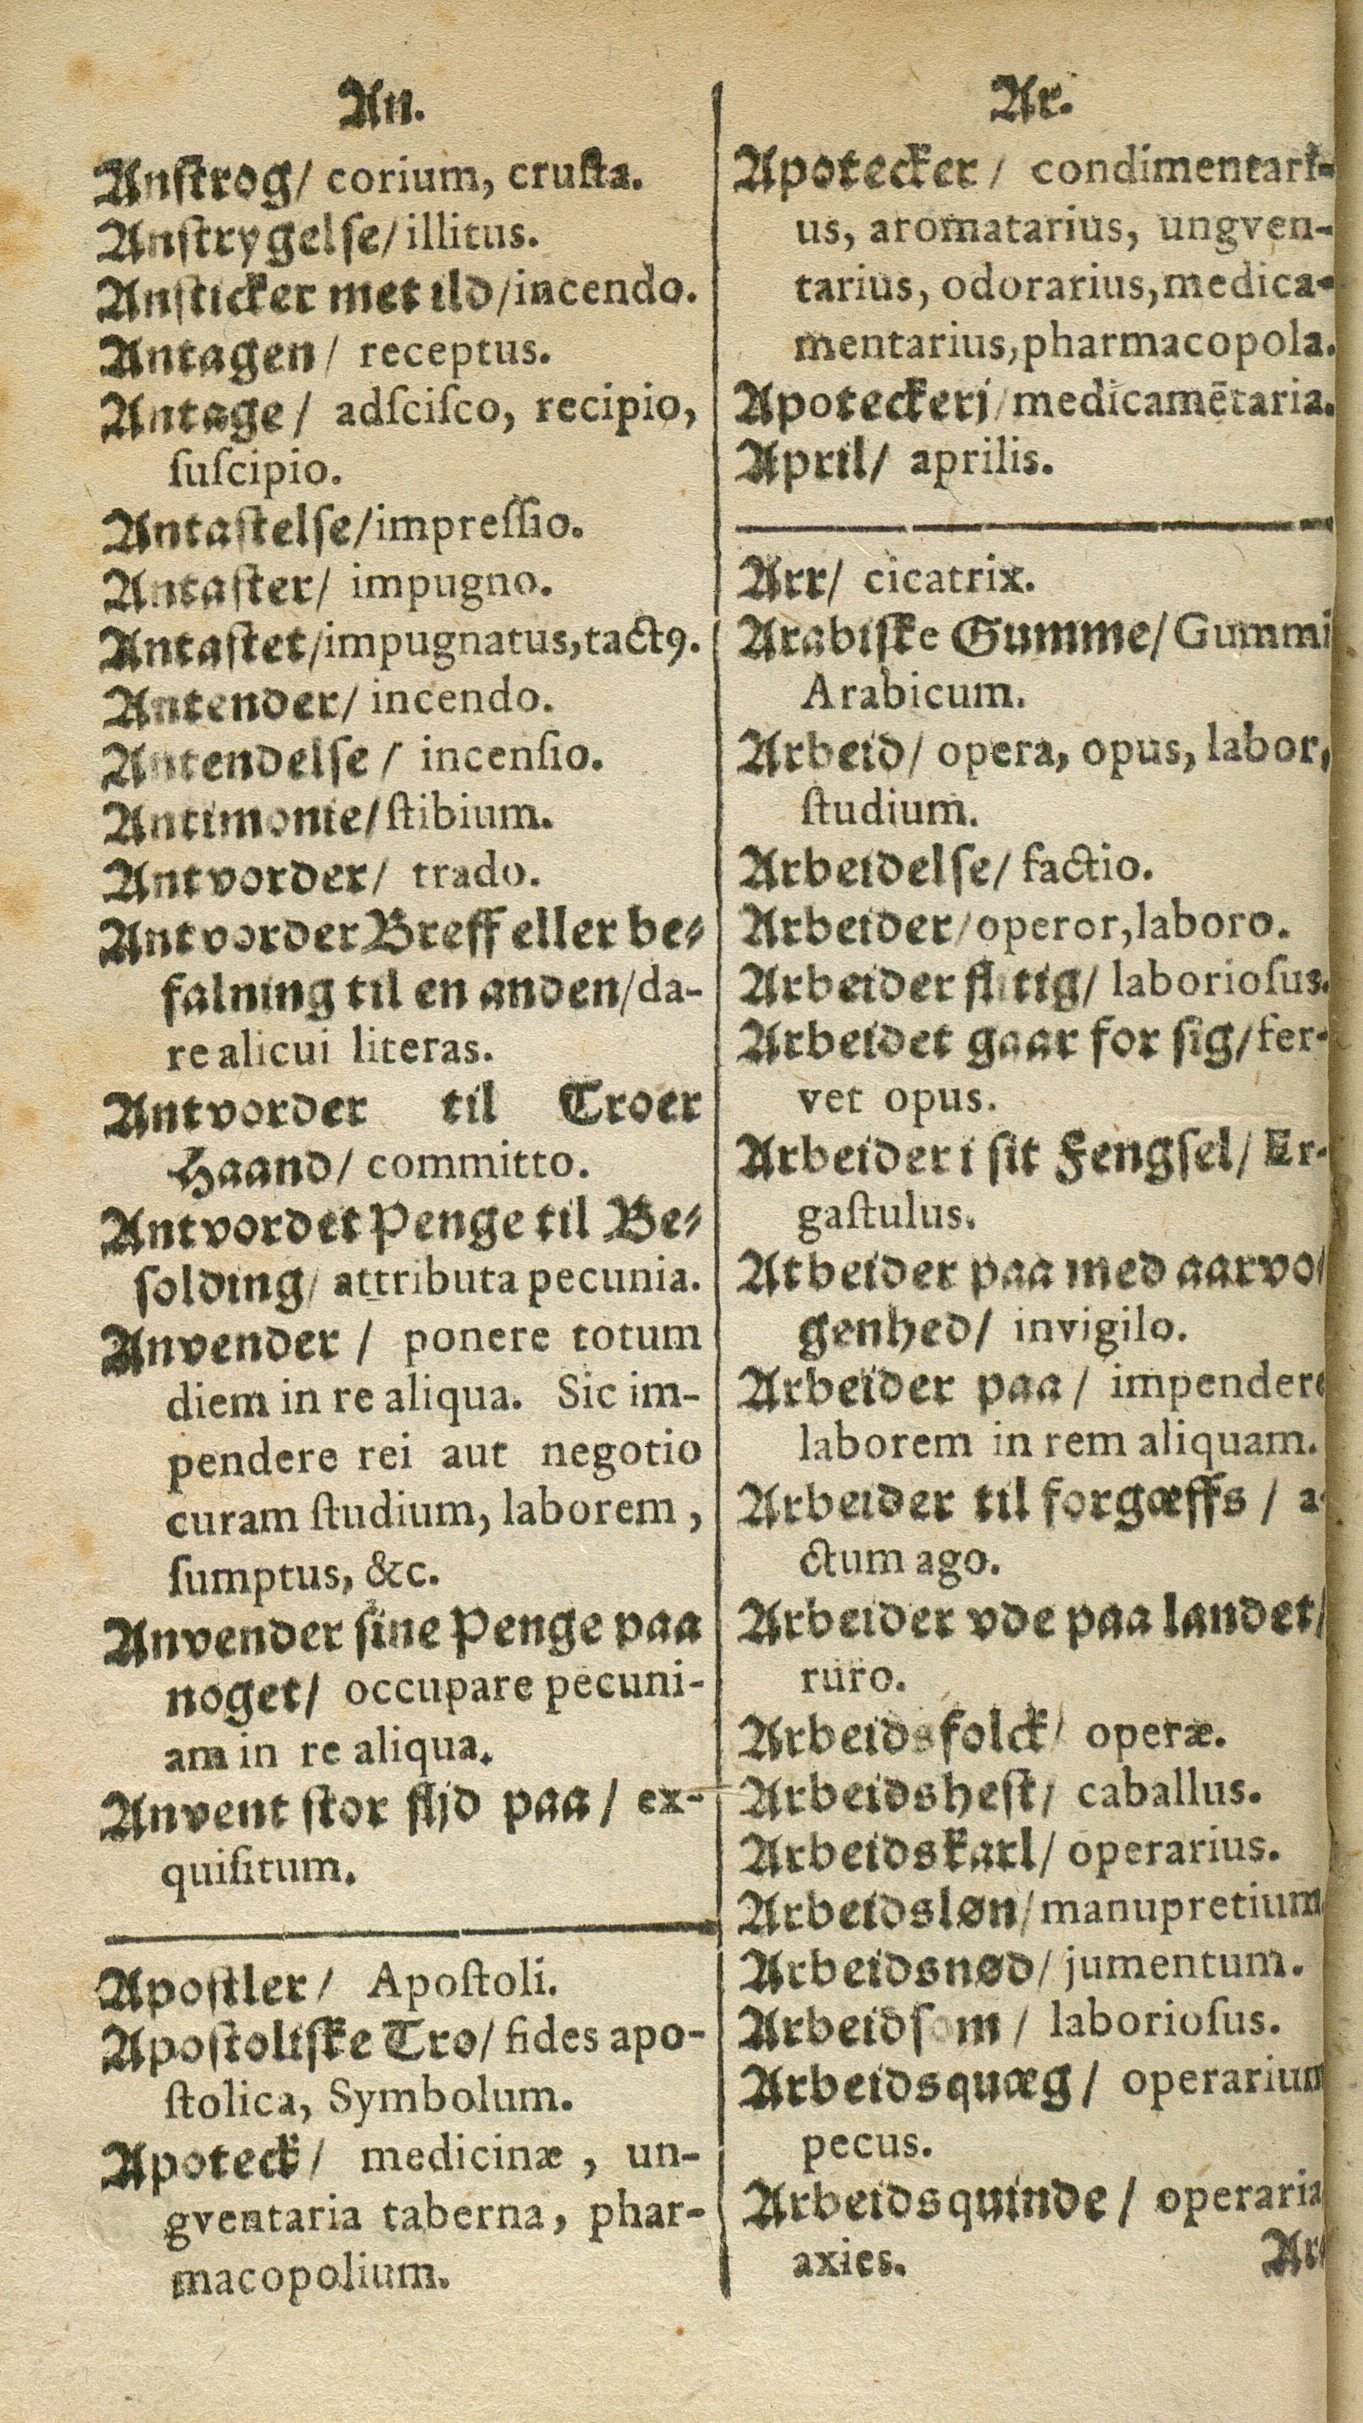 An.
Anstrog/ corium, crusta.
Anstrygelse/ illitus.
Ansticker met ild/incendo.
Antagen/ receptus.
Antage/ adſciſco, recipio,
ſuſcipio.
Antastelse/impreſſio.
Antaster/ impugno.
Antastet/impugnatus,tactꝯ.
Antender/ incendo.
Antendelse/ incenſio.
Antimonie/ſtibium.
Antvorder/ trado.
Antvorder Breff eller be-
falning til en anden/da-
re alicui literas.
Antvorder til Troer
Haand/ committo.
Antvordet Penge til Be-
solding/ attributa pecunia.
Anvender/ ponere totum
diem in re aliqua. Sic im-
pendere rei aut negotio
curam ſtudium, laborem,
ſumptus, &c.
Anvender sine Penge paa
noget/ occupare pecuni-
am in re aliqua.
Anvent stor flid paa/ ex-
quiſitum.
Apostler/ Apoſtoli.
Apostoliske Tro/ fides apo-
ſtolica, Symbolum.
Apoteck/ medicinæ, un-
gventaria taberna, phar-
macopolium.
Ar.
Apotecker/ condimentari-
us, aromatarius, ungven-
tarius, odorarius,medica-
mentarius,pharmacopola.
Apoteckeri/medicamētaria.
April/ aprilis.
Arr/ cicatrix.
Arabiske Gumme/Gummi
Arabicum.
Arbeid/ opera, opus, labor,
ſtudium.
Arbeidelse/ factio.
Arbeider/operor,laboro.
Arbeider flitig/ laborioſus.
Arbeidet gaar for sig/fer-
vet opus.
Arbeider i sit Fengsel/ Er-
gaſtulus.
Atbeider paa med aarvo-
genhed/ invigilo.
Arbeider paa/ impendere
laborem in rem aliquam.
Arbeider til forgæffs/ a-
ctum ago.
Arbeider vde paa landet/
ruro.
Arbeidsfolck/ operæ.
Arbeidshest/ caballus.
Arbeidskarl/ operarius.
Arbeidsløn/manupretium
Arbeidsnød/ jumentum.
Arbeidsom/ laborioſus.
Arbeidsquæg/ operarium
pecus.
Arbeidsquinde/ operaria
axies.
Ar-